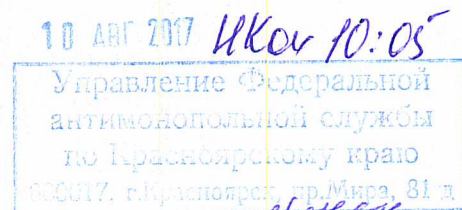 10 АВГ 2017 10:05
Управление Федеральной
антимонопольной службы
по Красноярскому краю
660017, г.Красноярск, пр.Мира, 81 д